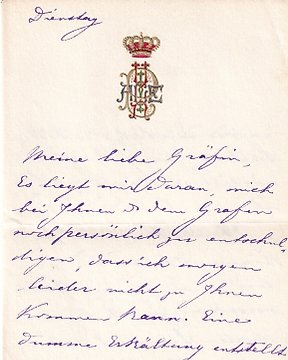 Dienstag
Meine liebe Gräfin,
Es liegt mir daran, mich
bei Ihnen & dem Grafen
noch persönlich zu entschul-
digen, dass ich morgen
leider nicht zu Ihnen
kommen kann. Eine
dumme Erkältung entstellt